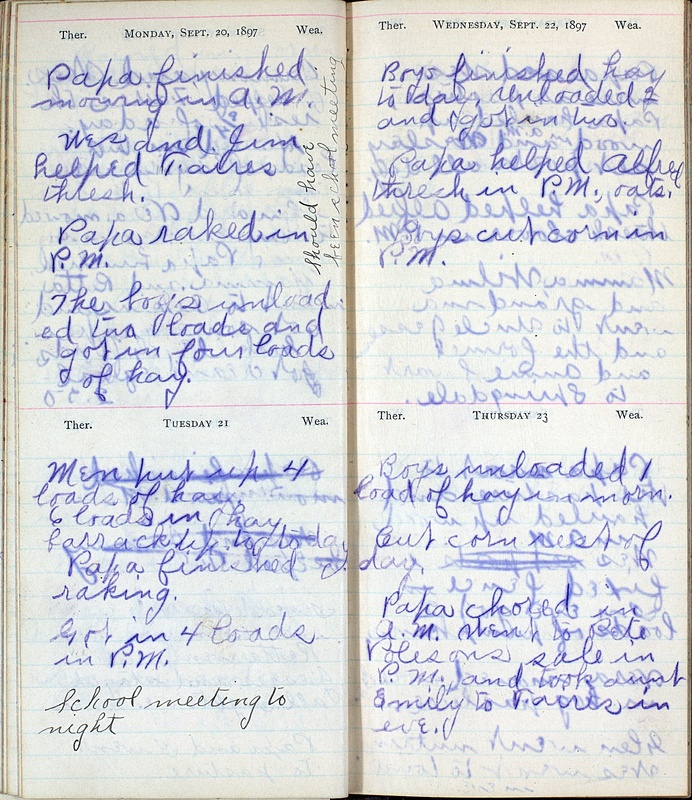 Ther. MONDAY, SEPT. 20, 1897 Wea.
Papa finished
mowing in A.M.
Wes and Jim
helped Tacies
thresh.
Papa raked in
P.M.
The boys unload
ed two loads and
got in four loads
of hay.
should have
been school meeting
Ther. TUESDAY 21 Wea.
Men put up 4
loads of hay
6 loads in hay
barrack to day
Papa finished
raking.
Got in 4 loads
in P.M.
School meeting to
night
Ther. WEDNESDAY, SEPT. 22, 1897 Wea.
Boys finished hay
to day, unloaded 2
and got in two.
Papa helped Alfred
thresh in P.M., oats.
Boys cut corn in
P.M.
Ther. THURSDAY 23 Wea.
Boys unloaded 1
load of hay in morn.
Cut corn rest of
day.
Papa chored in
A.M. Went to Pete
sale in
P.M., and took aunt
Emily to Tacies in
eve.